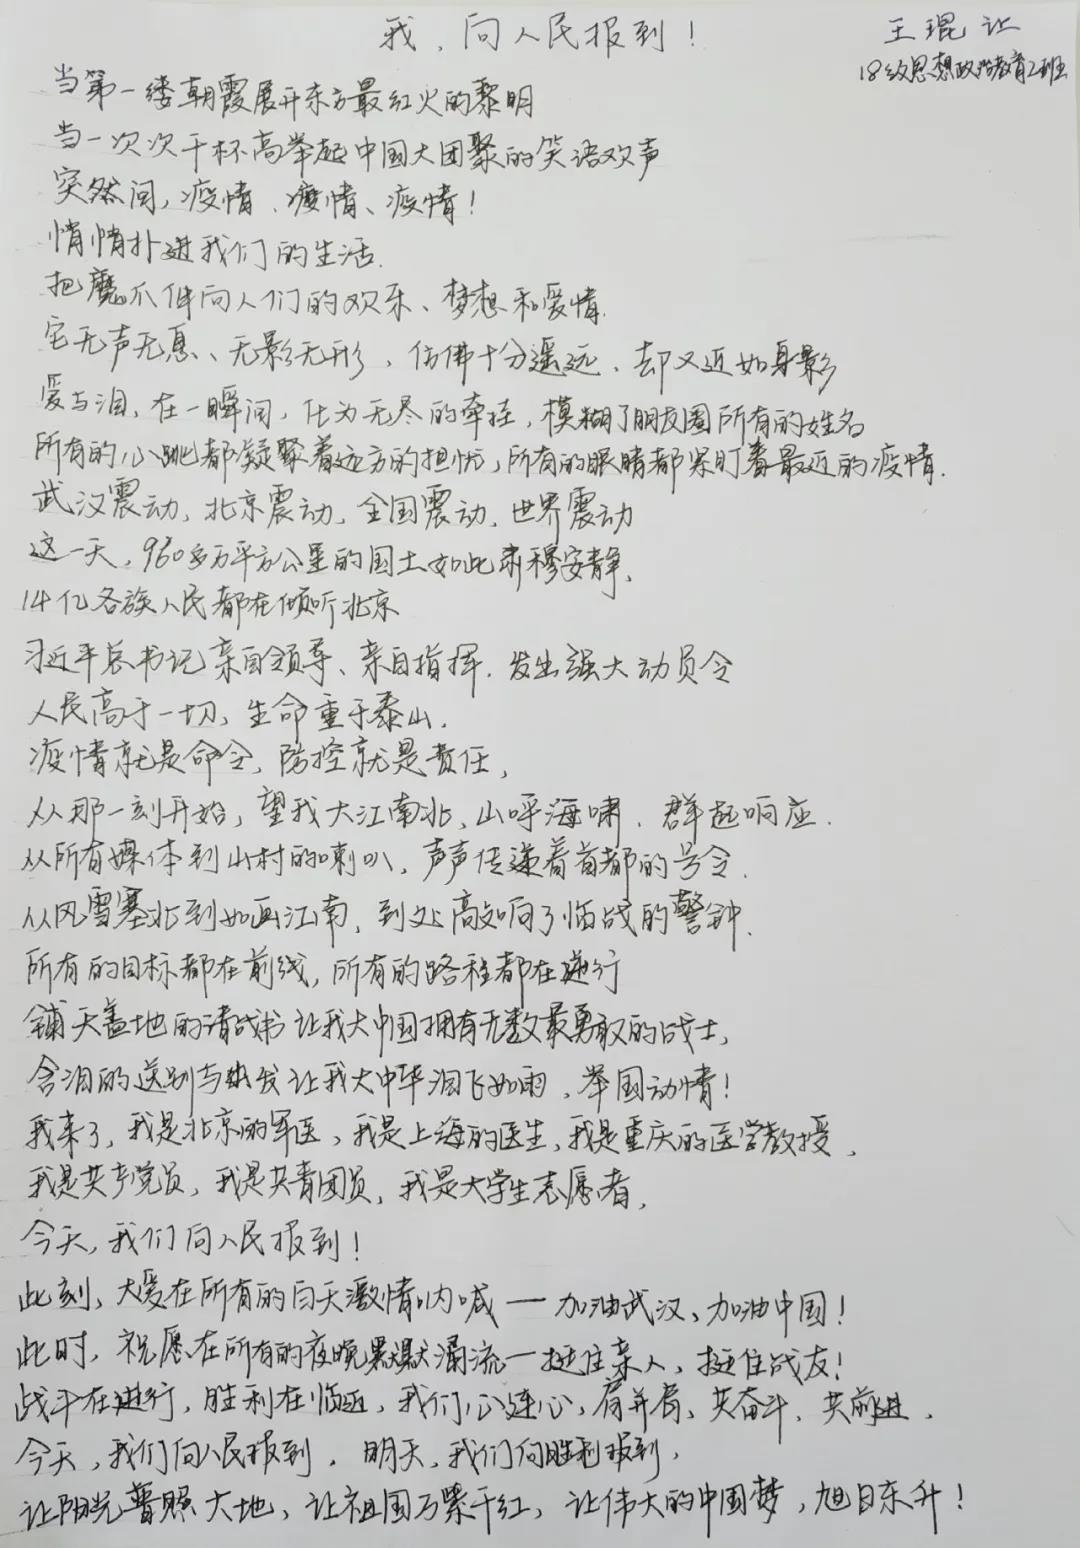 我，向人民报到！
王琨让
18级思想政治教育2班
当第一缕朝霞展开东方最红火的黎明
当一次次干杯高举起中国大团聚的笑语欢声
突然间，疫情、疫情、疫情！
悄悄扑进我们的生活.
把魔爪伸向人们的欢乐、梦想和爱情.
它无声无息、无影无形，仿佛十分遥远、却又近如身影
爱与泪，在一瞬间，化为无尽的牵挂，模糊了朋友圈所有的姓名
所有的心跳都凝聚着远方的担忧，所有的眼睛都紧盯着最近的疫情.
武汉震动，北京震动，全国震动，世界震动
这一天，960多万平方公里的国土如此肃穆安静、
14亿各族人民都在倾听北京
习近平总书记亲自领导、亲自指挥.发出强大动员令
人民高于一切，生命重于泰山.
疫情就是命令，防控就是责任，
从那一刻开始，望我大江南北，山呼海啸.群起响应.
从所有媒体到山村的喇叭，声声传递着首都的号令.
从风雪塞北到如画江南，到处高响了临战的警钟.
所有的目标都在前线，所有的路程都在逆行
铺天盖地的请战书让我大中国拥有无数最勇敢的战士，
含泪的送别与出发让我大中华泪飞如雨，举国动情！
我来了，我是北京的军医，我是上海的医生，我是重庆的医学教授，
我是共产党员，我是共青团员，我是大学生志愿者，
今天，我们向人民报到！
此刻，大爱在所有的白天激情呐喊一加油武汉、加油中国！
此时，祝愿在所有的夜晚默默涌流一挺住亲人，挺住战友！
战斗在进行，胜利在临近，我们心连心，肩并肩，共奋斗、共前进，
今天，我们向人民报到.明天，我们向胜利报到，
让阳光普照大地，让祖国万紫千红，让伟大的中国梦，旭日东升！